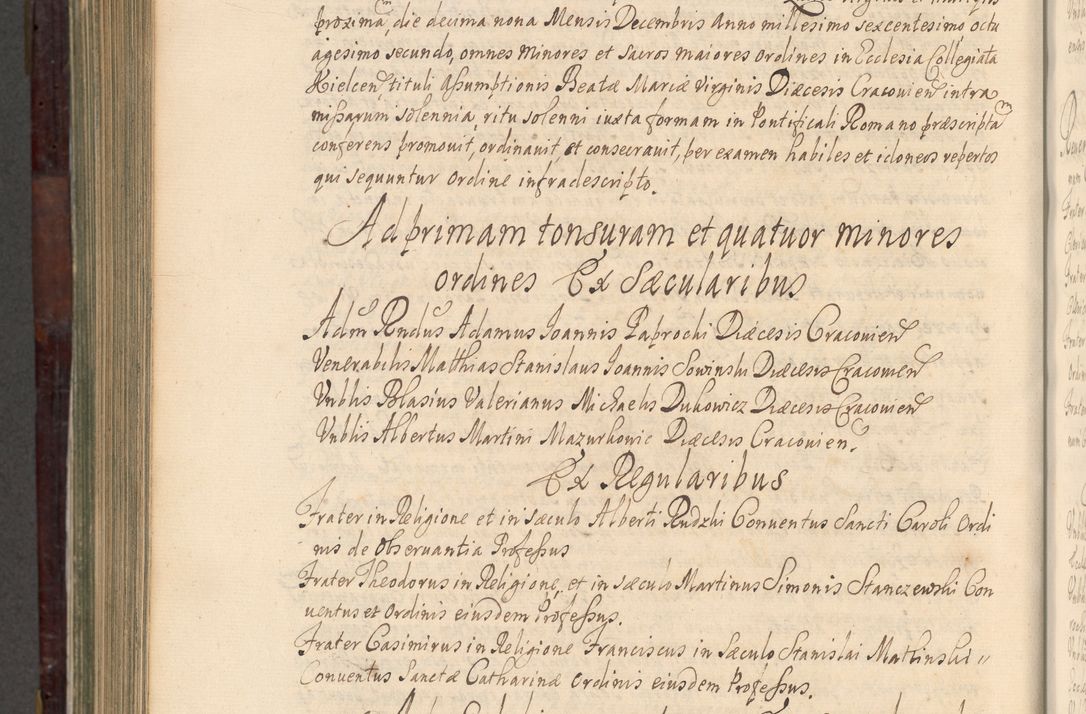 proxima, die decima nona Mensis Decembris Anno millesimo sexcentesimo octu
agesimo secundo, omnes Minores et Sacros maiores Ordines in Ecclesia Collegiata
Kielcen tituli Assumptionis Beatæ Mariæ Virginis Diæcesis Cracovien intra
missarum solennia, ritu solenni iuxta formam in Pontificali Romano præscripta
conferens promovit, ordinavit, et consecravit, per examen habiles et idoneos repertos
qui sequuntur ordine infradescripto.
Ad primam tonsuram et quatuor minores
ordines Ex Sæcularibus
Adm Rndus Adamus Joannis Paprocki Diæcesis Cracovien
Venerabilis Matthias Stanislaus Joannis Sowinski Diæcesis Cracovien
Vnblis Blasius Valerianus Michaelis Dukowicz Diæcesis Cracovien
Vnblis Albertus Martini Mazurkowic Diæcesis Cracovien.
Ex Regularibus
Frater in Religione et in sæculo Alberti Rudzki Conventus Sancti Caroli Ordi
nis de Observantia Professus
Frater Theodorus in Religione, et in sæculo Martinus Simonis Stanczewski Con
ventus et Ordinis eiusdem Professus.
Frater Casimirus in Religione Franciscus in Sæculo Stanislai Matkinski
Conventus Sanctæ Catharinæ Ordinis eiusdem Professus.